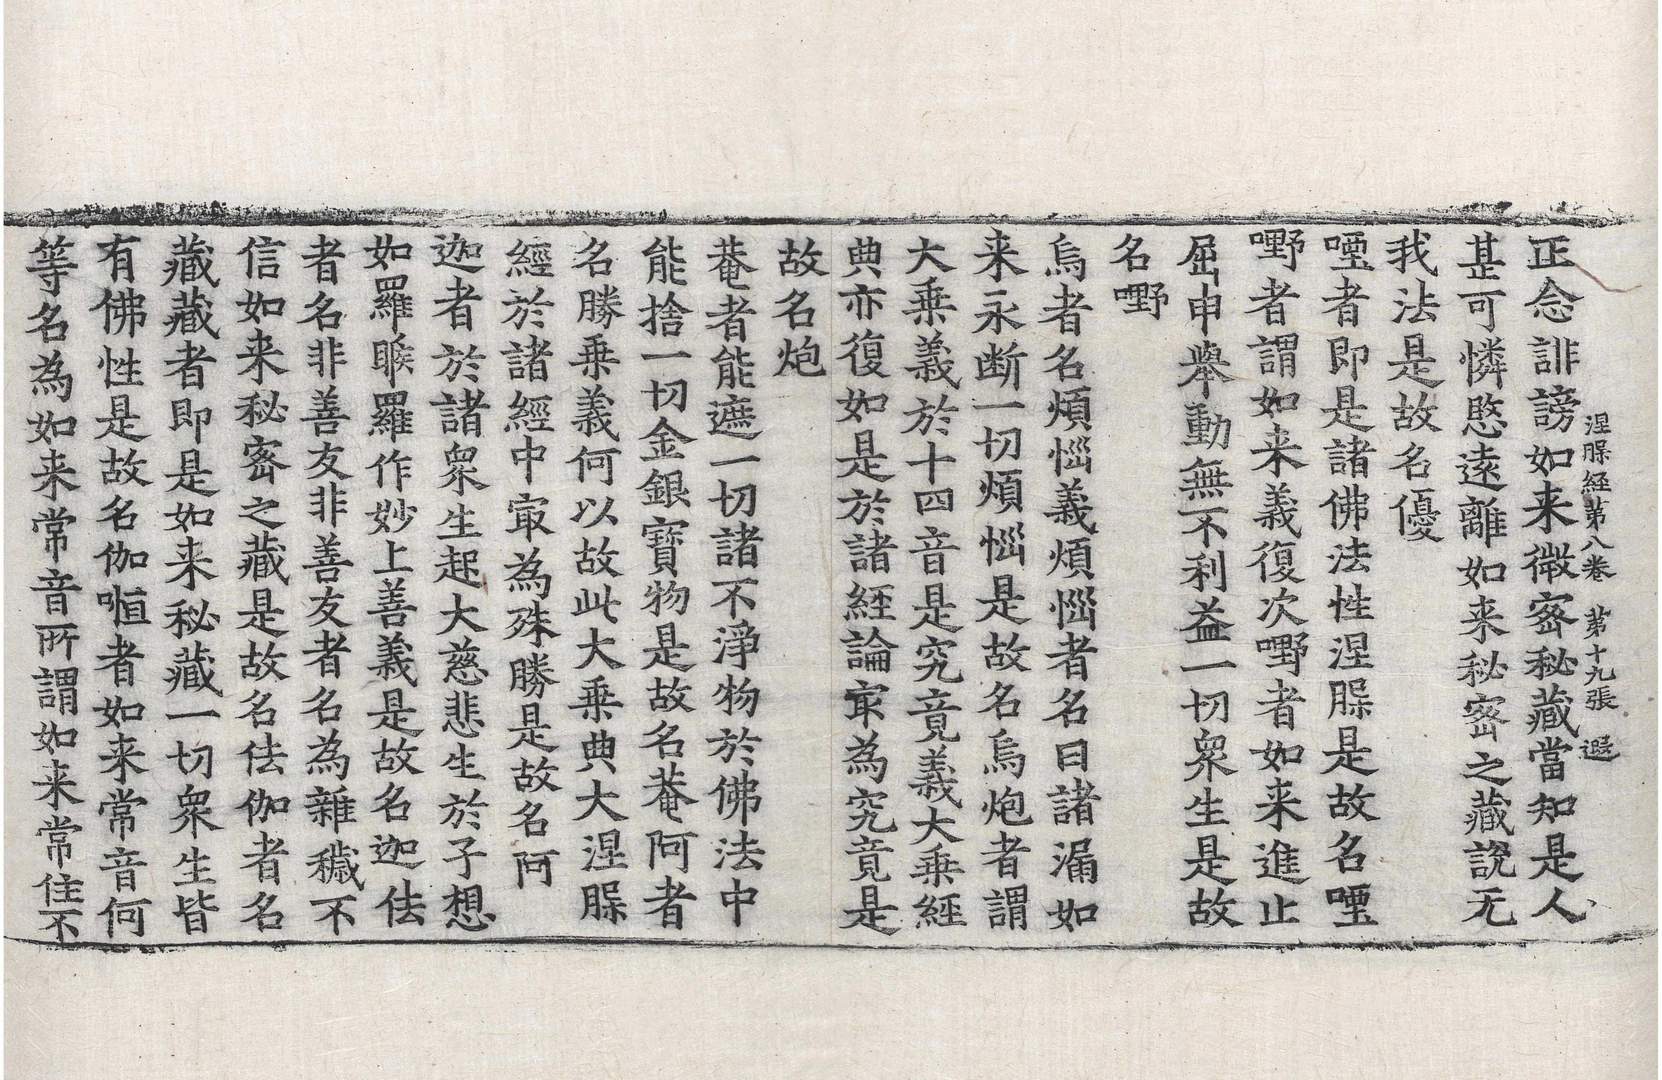 涅槃経第八卷　第十九張　遐
正念誹謗如来微宻秘藏當知是人
甚可憐愍遠離如来秘宻之藏說无
我法是故名優
㘁者即是諸佛法性涅槃是故名㘁
嘢者謂如来義復次嘢者如来進止
屈申舉動無不利益一切衆生是故
名嘢
烏者名煩惱義煩惱者名曰諸漏如
来永断一切煩惱是故名烏炮者謂
大乗義於十四音是究竟義大乗經
典亦復如是於諸経論㝡為究竟是
故名炮
菴者能遮一切諸不淨物於佛法中
能捨一切金銀寶物是故名菴阿者
名勝乗義何以故此大乗典大涅槃
經於諸經中㝡為殊勝是故名阿
迦者於諸衆生起大慈悲生於子想
如羅睺羅作妙上善義是故名迦佉
者名非善友非善友者名為雜穢不
信如来秘宻之藏是故名佉伽者名
藏藏者即是如来秘藏一切衆生皆
有佛性是故名伽㘅者如来常音何
等名為如来常音所謂如来常住不